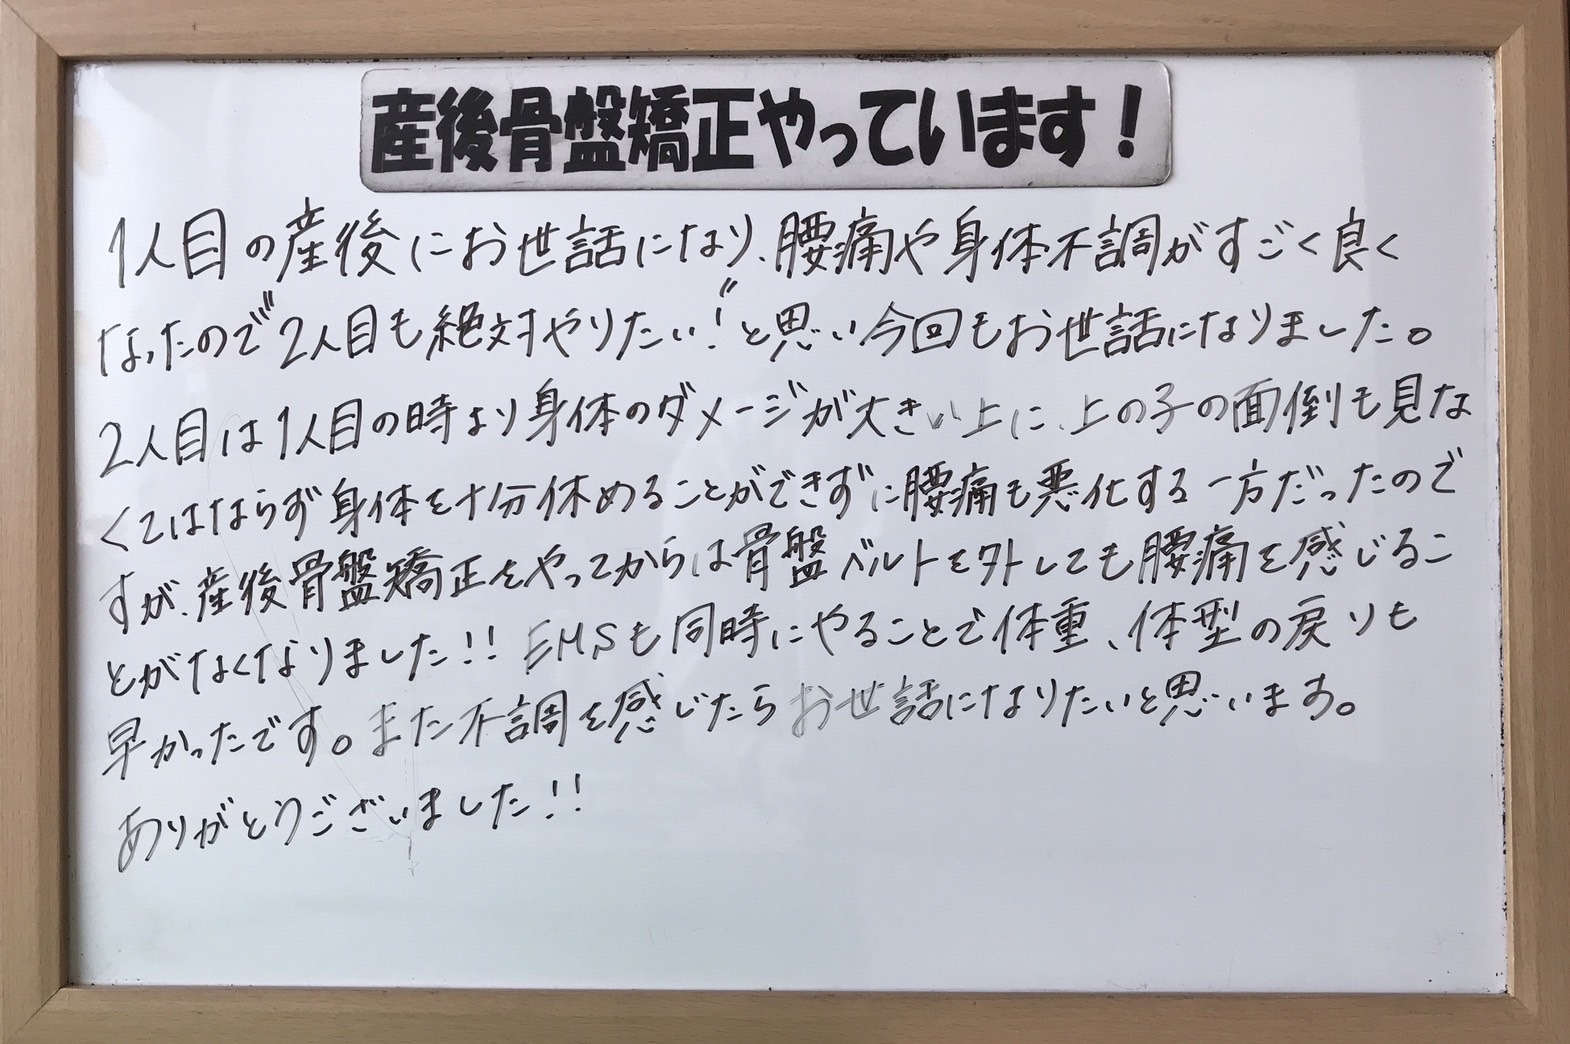 産後骨盤矯正やっています!
1人目の産後にお世話になり、腰痛や身体不調がすごく良く
なったので"2人目も絶対やりたい!"と思い今回もお世話になりました。
2人目は1人目の時より身体のダメージが大きい上に、上の子の面倒も見な
くてはならず身体を十分休めることができずに腰痛も悪化する一方だったので
すが、産後骨盤矯正をやってからは骨盤ベルトを外しても腰痛を感じるこ
とがなくなりました!!EMSも同時にやることで体重、体型の戻りも
早かったです。また不調を感じたらお世話になりたいと思います。
ありがとうございました!!